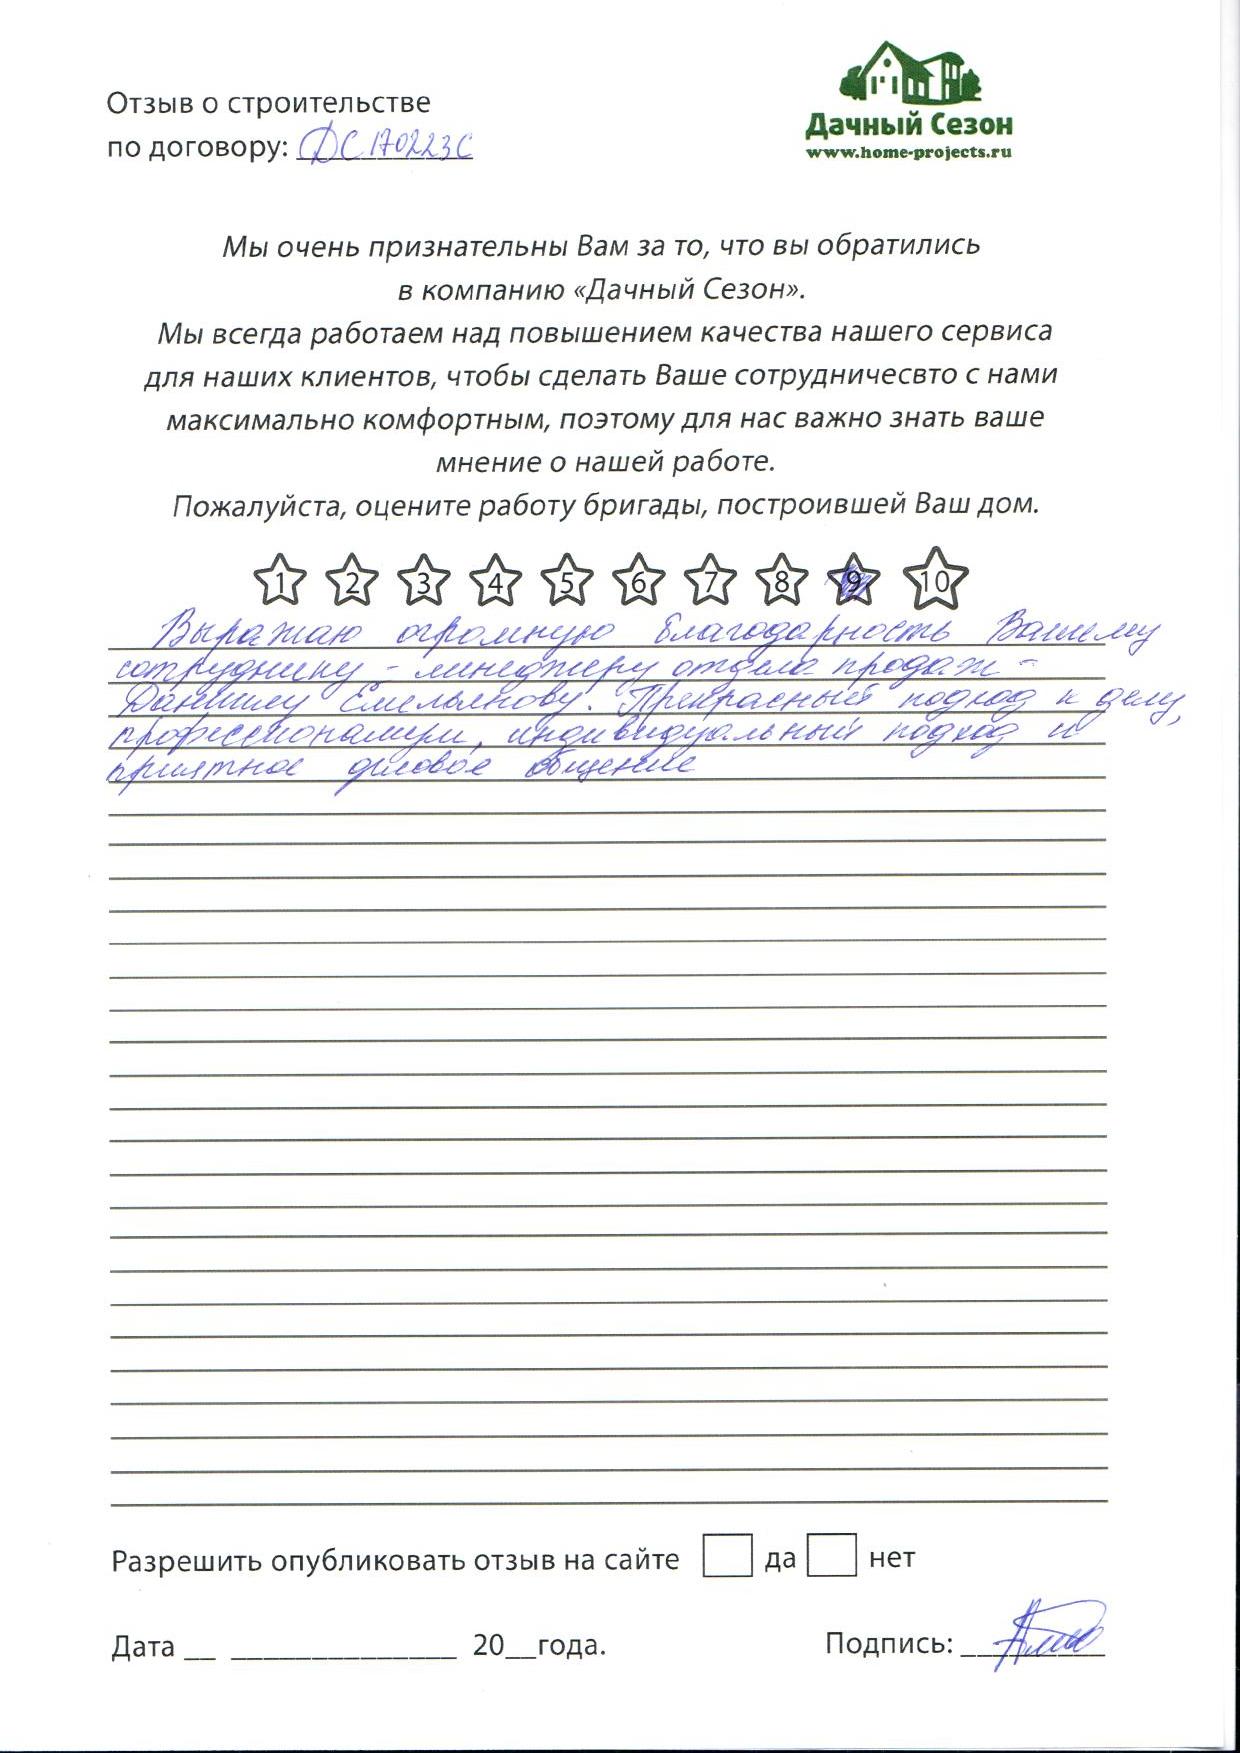 Отзыв о строительстве
по договору: ДС170223С
Дачный Сезон
www.home-projects.ru
Мы очень признательны Вам за то, что вы обратились
в компанию «Дачный Сезон».
Мы всегда работаем над повышением качества нашего сервиса
для наших клиентов, чтобы сделать Ваше сотрудничесвто с нами
максимально комфортным, поэтому для нас важно знать ваше
мнение о нашей работе.
Пожалуйста, оцените работу бригады, построившей Ваш дом.
1 2 3 4 5 6 7 8 9 10
Выражаю огромную благодарность Вашему
сотруднику - менеджеру отдела продаж -
Даниилу Емельянову. Прекрасный подход к делу,
профессионализм, индивидуальный подход и
приятное деловое общение
Разрешить опубликовать отзыв на сайте да нет
Дата __ ______________ 20__года. Подпись: _________